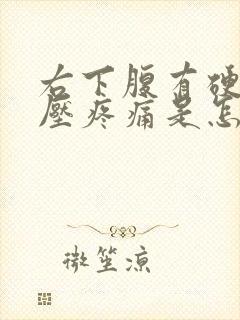 右下腹有硬
壓疼痛是怎
微笙涼